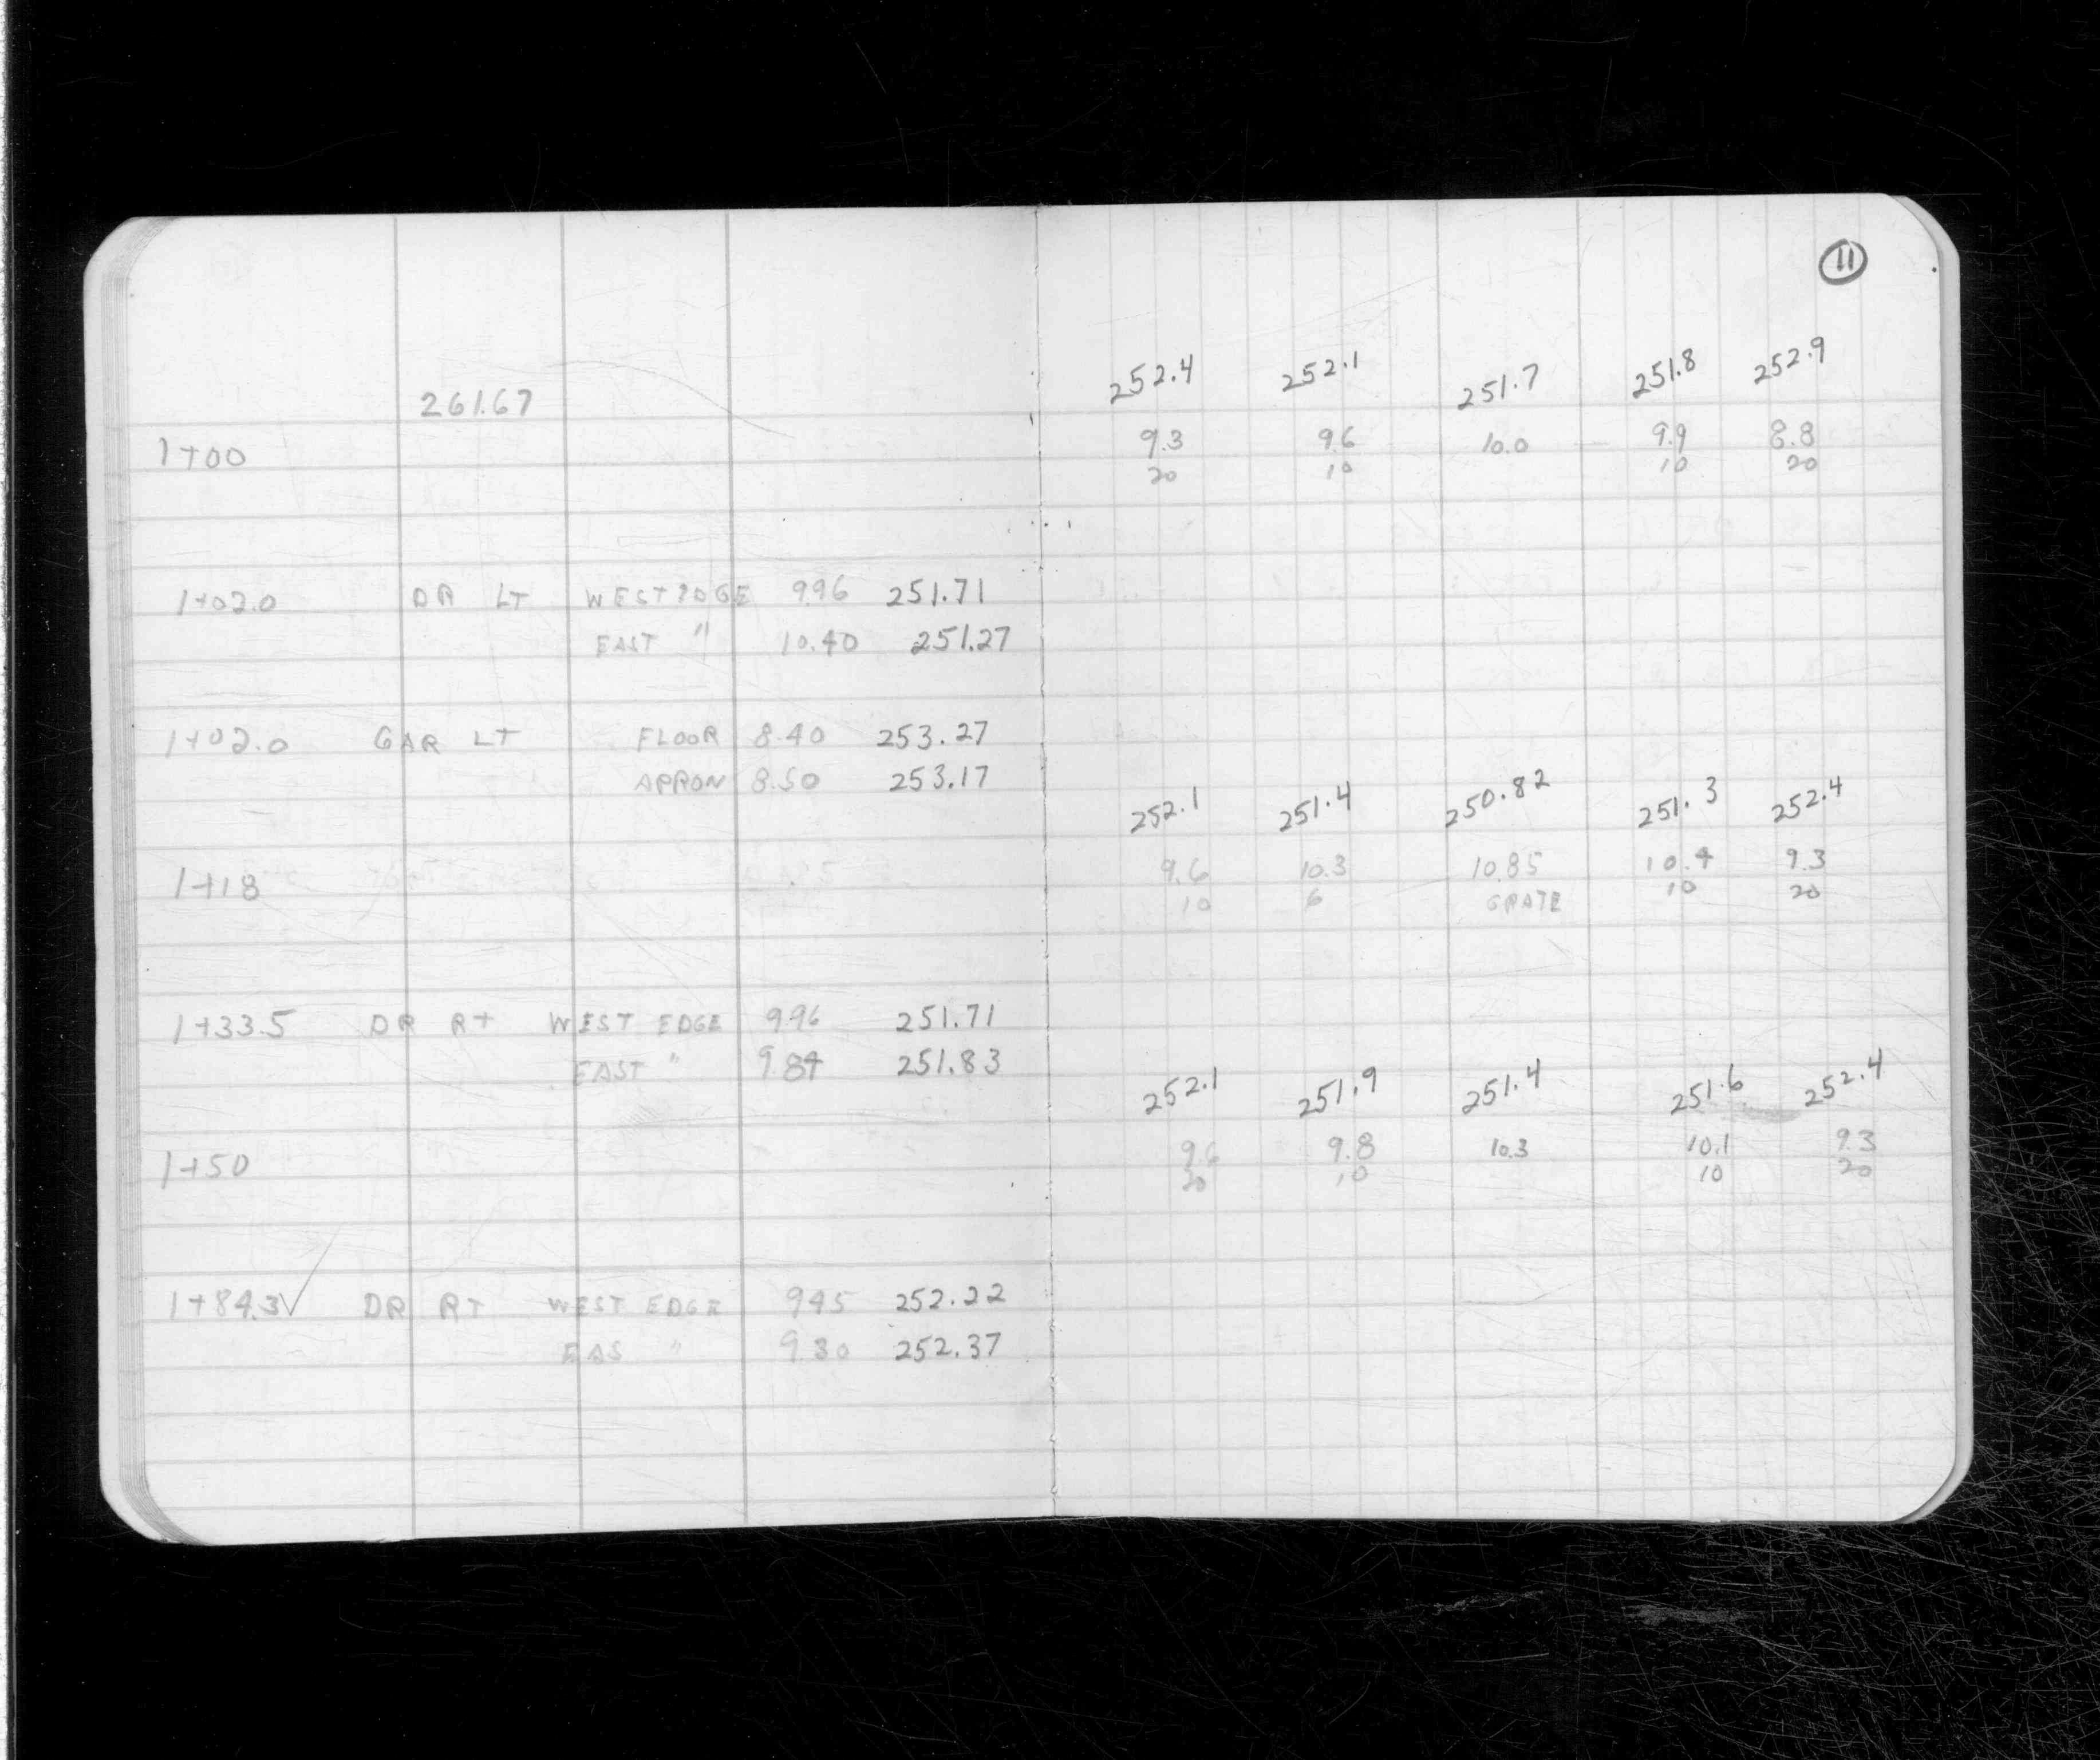 11
252.4 252.1 251.7 251.8 252.9
261.67
1+00 9.3 9.6 10.0 9.9 8.8
20 10 10 20
1+02.0 DR LT WEST EDGE 9.96 251.71
EAST " 10.40 251.27
1+02.0 GAR LT FLOOR 8.40 253.27
APRON 8.50 253.17
252.1 251.4 250.82 251.3 252.4
1+18 9.6 10.3 10.85 10.4 9.3
10 6 GRATE 10 20
1+33.5 DR RT WEST EDGE 9.96 251.71
EAST " 9.84 251.83
252.1 251.9 251.4 251.6 252.4
1+50 9.6 9.8 10.3 10.1 9.3
20 10 10 20
1+84.3✓ DR RT WEST EDGE 945 252.22
EAS " 9.30 252.37